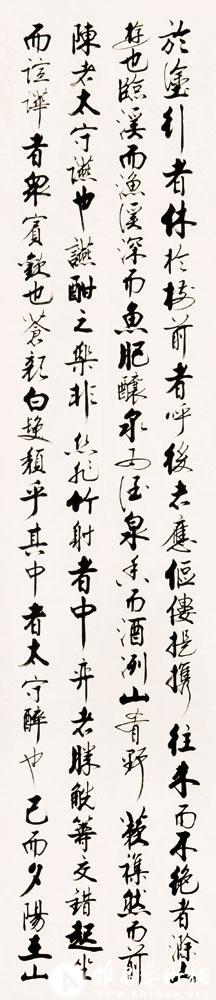 於塗行者休於樹前者呼後者應傴僂提攜往來而不絕者滁人
遊也臨溪而漁溪深而魚肥釀泉為酒泉香而酒冽山肴野蔌雜然而前
陳者太守讌也讌酣之樂非絲非竹射者中弈者勝觥籌交錯起坐
而諠譁者眾賓歡也蒼顏白髮頹乎其中者太守醉也已而夕陽在山
雅昌艺术网
WWW.ARTRON.NET